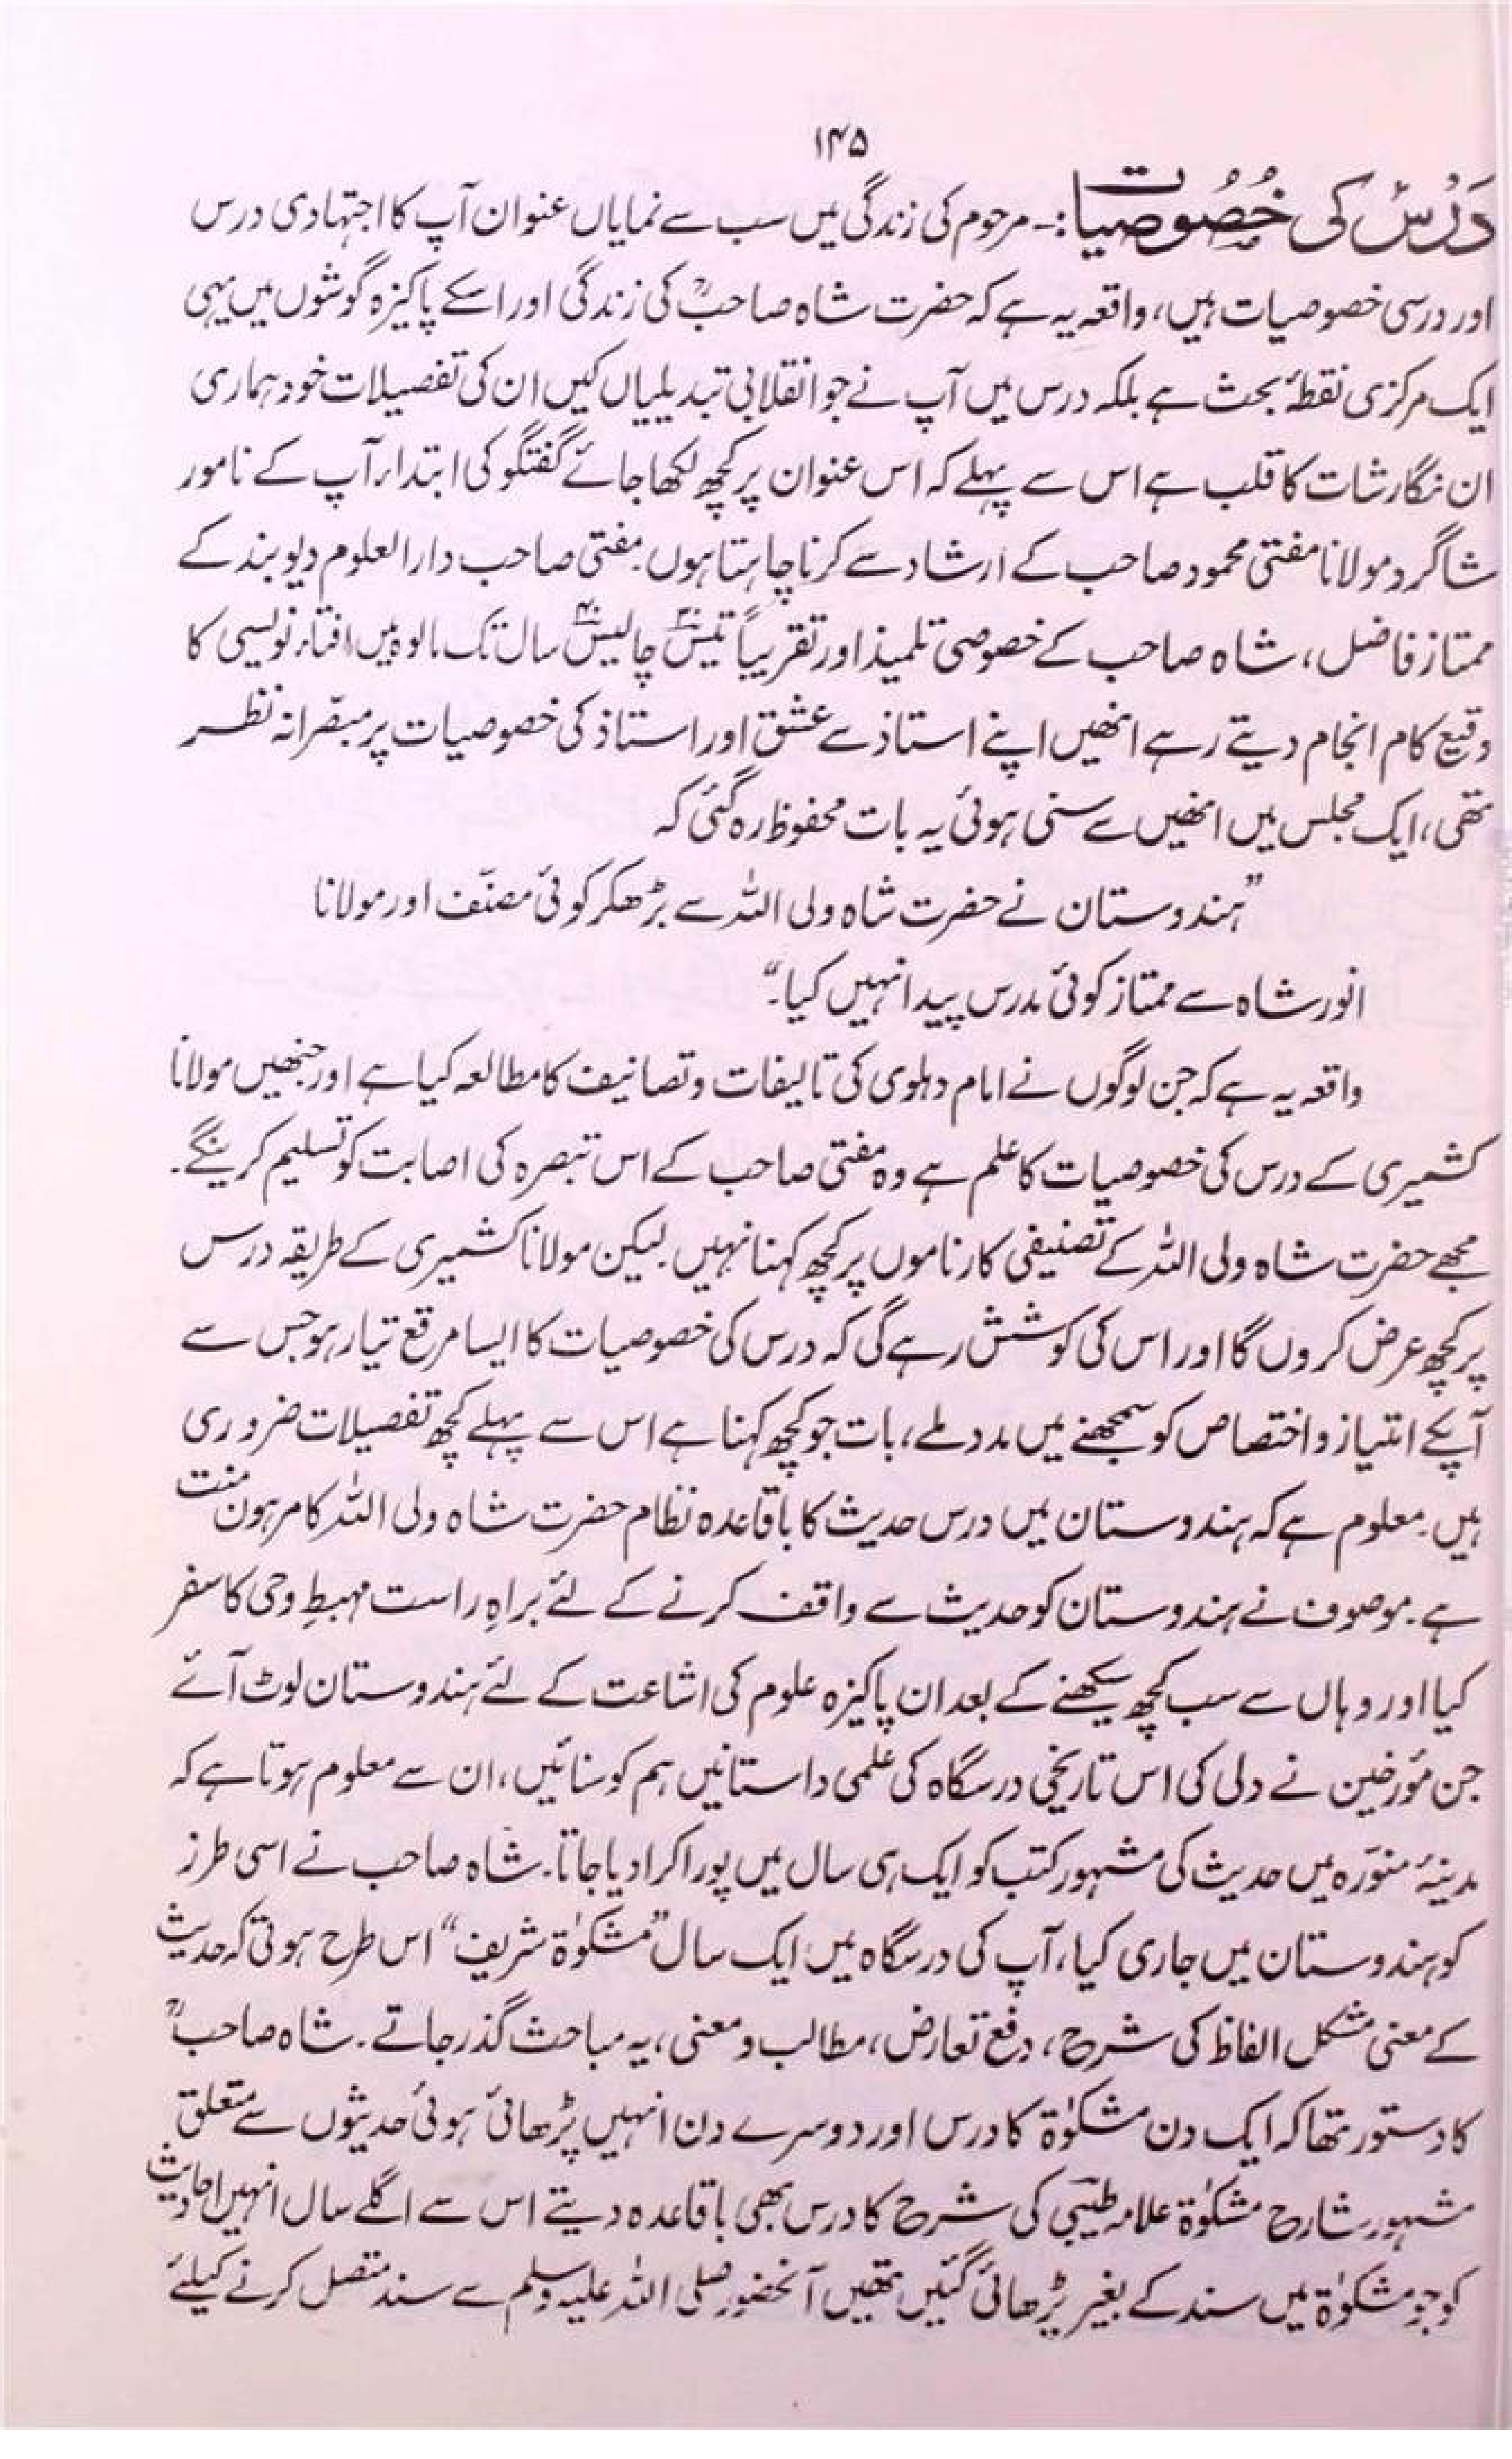 ۱۴۵
دَرْس کی خُصُوصیات:- مرحوم کی زندگی میں سب سے نمایاں عنوان آپ کا اجتہادی درس
اور درسی خصوصیات ہیں، واقعہ یہ ہے کہ حضرت شاہ صاحبؒ کی زندگی اور اسکے پاکیزہ گوشوں میں یہی
ایک مرکزی نقطۂ بحث ہے بلکہ درس میں آپ نے جو انقلابی تبدیلیاں کیں ان کی تفصیلات خود ہماری
ان نگارشات کا قلب ہے اس سے پہلے کہ اس عنوان پر کچھ لکھا جائے گفتگو کی ابتداء آپ کے نامور
شاگرد مولانا مفتی محمود صاحب کے ارشاد سے کرنا چاہتا ہوں۔ مفتی صاحب دارالعلوم دیوبند کے
ممتاز فاضل، شاہ صاحب کے خصوصی تلمیذ اور تقریباً تیس۳۰ چالیس۴۰ سال تک مالوہ میں افتاء نویسی کا
وقیع کام انجام دیتے رہے انھیں اپنے استاذ سے عشق اور استاذ کی خصوصیات پر مبصّرانہ نظر
تھی، ایک مجلس میں انھیں سے سنی ہوئی یہ بات محفوظ رہ گئی کہ
”ہندوستان نے حضرت شاہ ولی اللہ سے بڑھکر کوئی مصنّف اور مولانا
انور شاہ سے ممتاز کوئی مدرس پیدا نہیں کیا۔“
واقعہ یہ ہے کہ جن لوگوں نے امام دہلوی کی تالیفات و تصانیف کا مطالعہ کیا ہے اور جنھیں مولانا
کشمیری کے درس کی خصوصیات کا علم ہے وہ مفتی صاحب کے اس تبصرہ کی اصابت کو تسلیم کرینگے۔
مجھے حضرت شاہ ولی اللہ کے تصنیفی کارناموں پر کچھ کہنا نہیں۔ لیکن مولانا کشمیری کے طریقہ درس
پر کچھ عرض کروں گا اور اس کی کوشش رہے گی کہ درس کی خصوصیات کا ایسا مرقع تیار ہو جس سے
آپکے امتیاز و اختصاص کو سمجھنے میں مدد ملے، بات جو کچھ کہنا ہے اس سے پہلے کچھ تفصیلات ضروری
ہیں۔ معلوم ہے کہ ہندوستان میں درس حدیث کا باقاعدہ نظام حضرت شاہ ولی اللہ کا مرہون منت
ہے۔ موصوف نے ہندوستان کو حدیث سے واقف کرنے کے لئے براہِ راست مہبطِ وحی کا سفر
کیا اور وہاں سے سب کچھ سیکھنے کے بعد ان پاکیزہ علوم کی اشاعت کے لئے ہندوستان لوٹ آئے
جن مؤرخین نے دلی کی اس تاریخی درسگاہ کی علمی داستانیں ہم کو سنائیں، ان سے معلوم ہوتا ہے کہ
مدینۂ منوّرہ میں حدیث کی مشہور کتب کو ایک ہی سال میں پورا کرا دیا جاتا۔ شاہ صاحب نے اسی طرز
کو ہندوستان میں جاری کیا، آپ کی درسگاہ میں ایک سال ”مشکوٰۃ شریف“ اس طرح ہوتی کہ حدیث
کے معنی مشکل الفاظ کی شرح، دفع تعارض، مطالب و معنی، یہ مباحث گذر جاتے۔ شاہ صاحبؒ
کا دستور تھا کہ ایک دن مشکوٰۃ کا درس اور دوسرے دن انہیں پڑھائی ہوئی حدیثوں سے متعلق
مشہور شارح مشکوٰۃ علامہ طیبی کی شرح کا درس بھی باقاعدہ دیتے اس سے اگلے سال انہیں احادیث
کو جو مشکوٰۃ میں سند کے بغیر پڑھائی گئیں تھیں آنحضور صلی اللہ علیہ وسلم سے سند متصل کرنے کیلئے